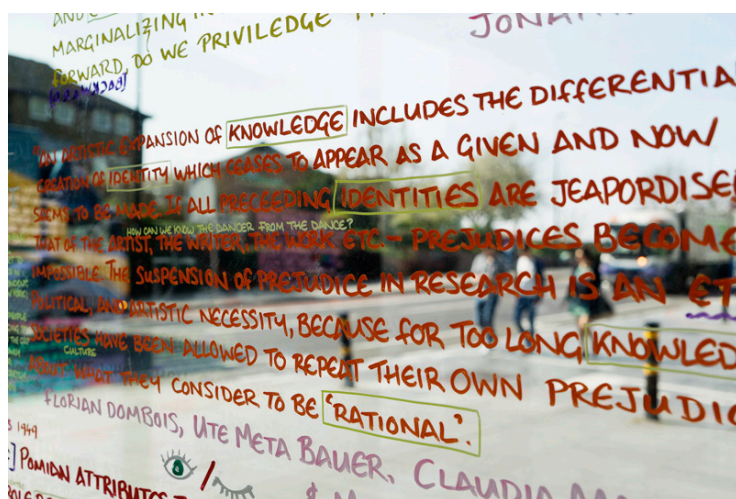 AND
MARGINALIZING IN
JONA
FORWARD, DO WE PRIVILEDGE
"AN ARTISTIC EXPANSION OF KNOWLEDGE INCLUDES THE DIFFERENTIA
CREATION OF IDENTITY WHICH CEASES TO APPEAR AS A GIVEN AND NOW
SEEMS TO BE MADE. IF ALL PRECEEDING IDENTITIES ARE JEAPORDISE
HOW CAN WE KNOW THE DANCER FROM THE DANCE?
THAT OF THE ARTIST, THE WRITER, THE WORK ETC. - PREJUDICES BECOME
IMPOSSIBLE. THE SUSPENSION OF PREJUDICE IN RESEARCH IS AN ET
POLITICAL, AND ARTISTIC NECESSITY, BECAUSE FOR TOO LONG KNOWLED
SOCIETIES HAVE BEEN ALLOWED TO REPEAT THEIR OWN PREJUDIC
CULTURE
ABOUT WHAT THEY CONSIDER TO BE 'RATIONAL'.
FLORIAN DOMBOIS, UTE META BAUER, CLAUDIA
1949
POMIAN ATTRIBUTES